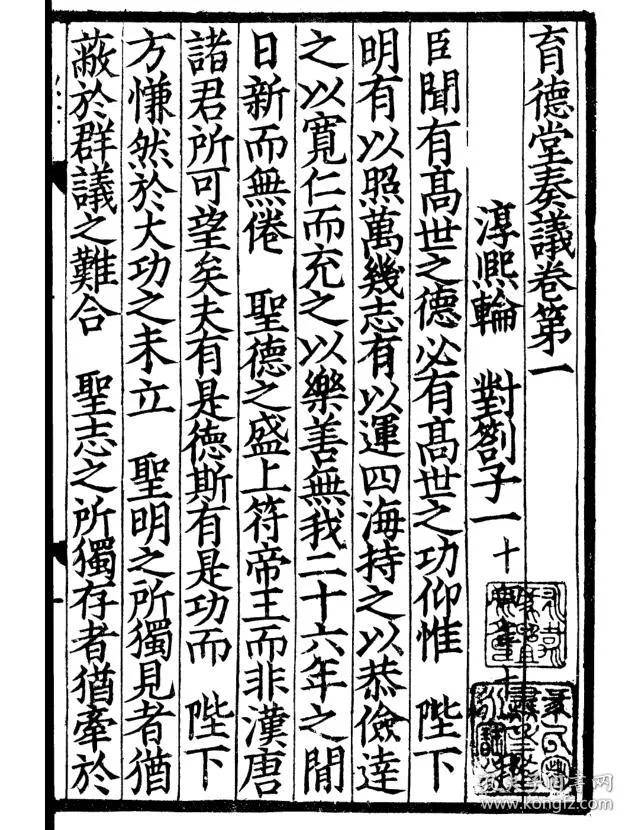 育德堂奏議卷第一
淳熙輪 對劄子一 十
臣聞有髙世之德必有髙世之功仰惟 陛下
明有以照萬幾志有以運四海持之以恭儉達
之以寬仁而充之以樂善無我二十六年之閒
日新而無倦 聖德之盛上符帝王而非漢唐
諸君所可望矣夫有是德斯有是功而 陛下
方慊然於大功之未立 聖明之所獨見者猶
蔽於群議之難合 聖志之所獨存者猶牽於
www.kongfz.com